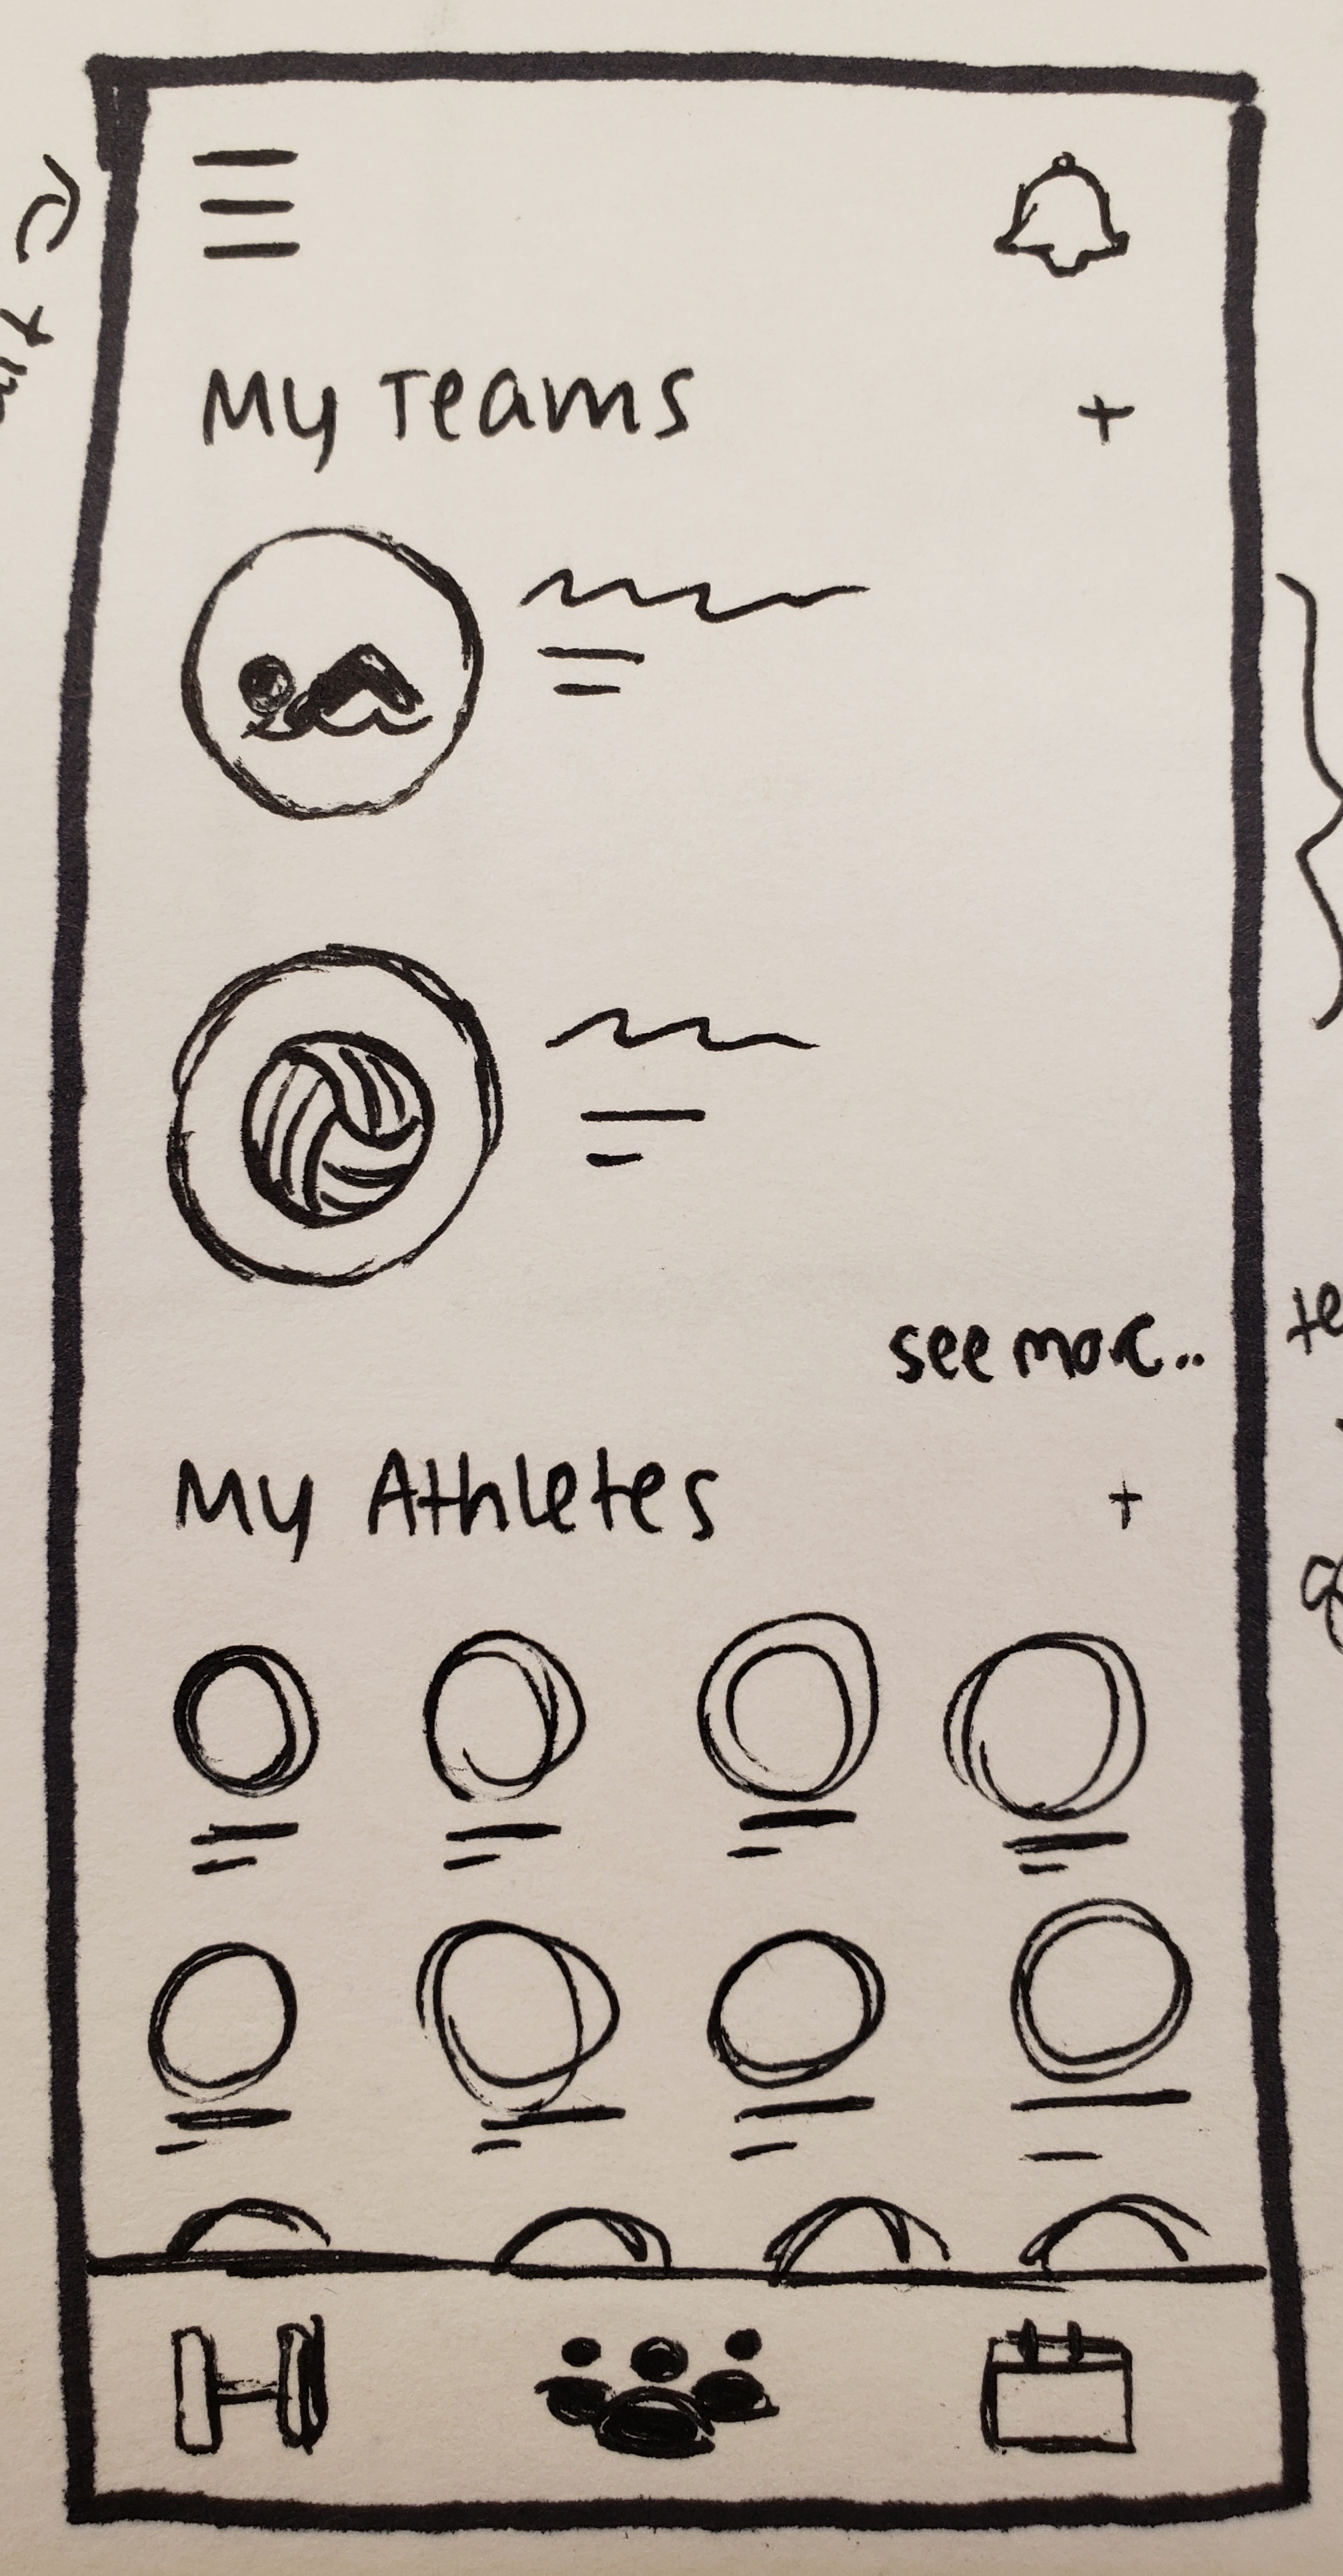 My Teams +
see more..
My Athletes +